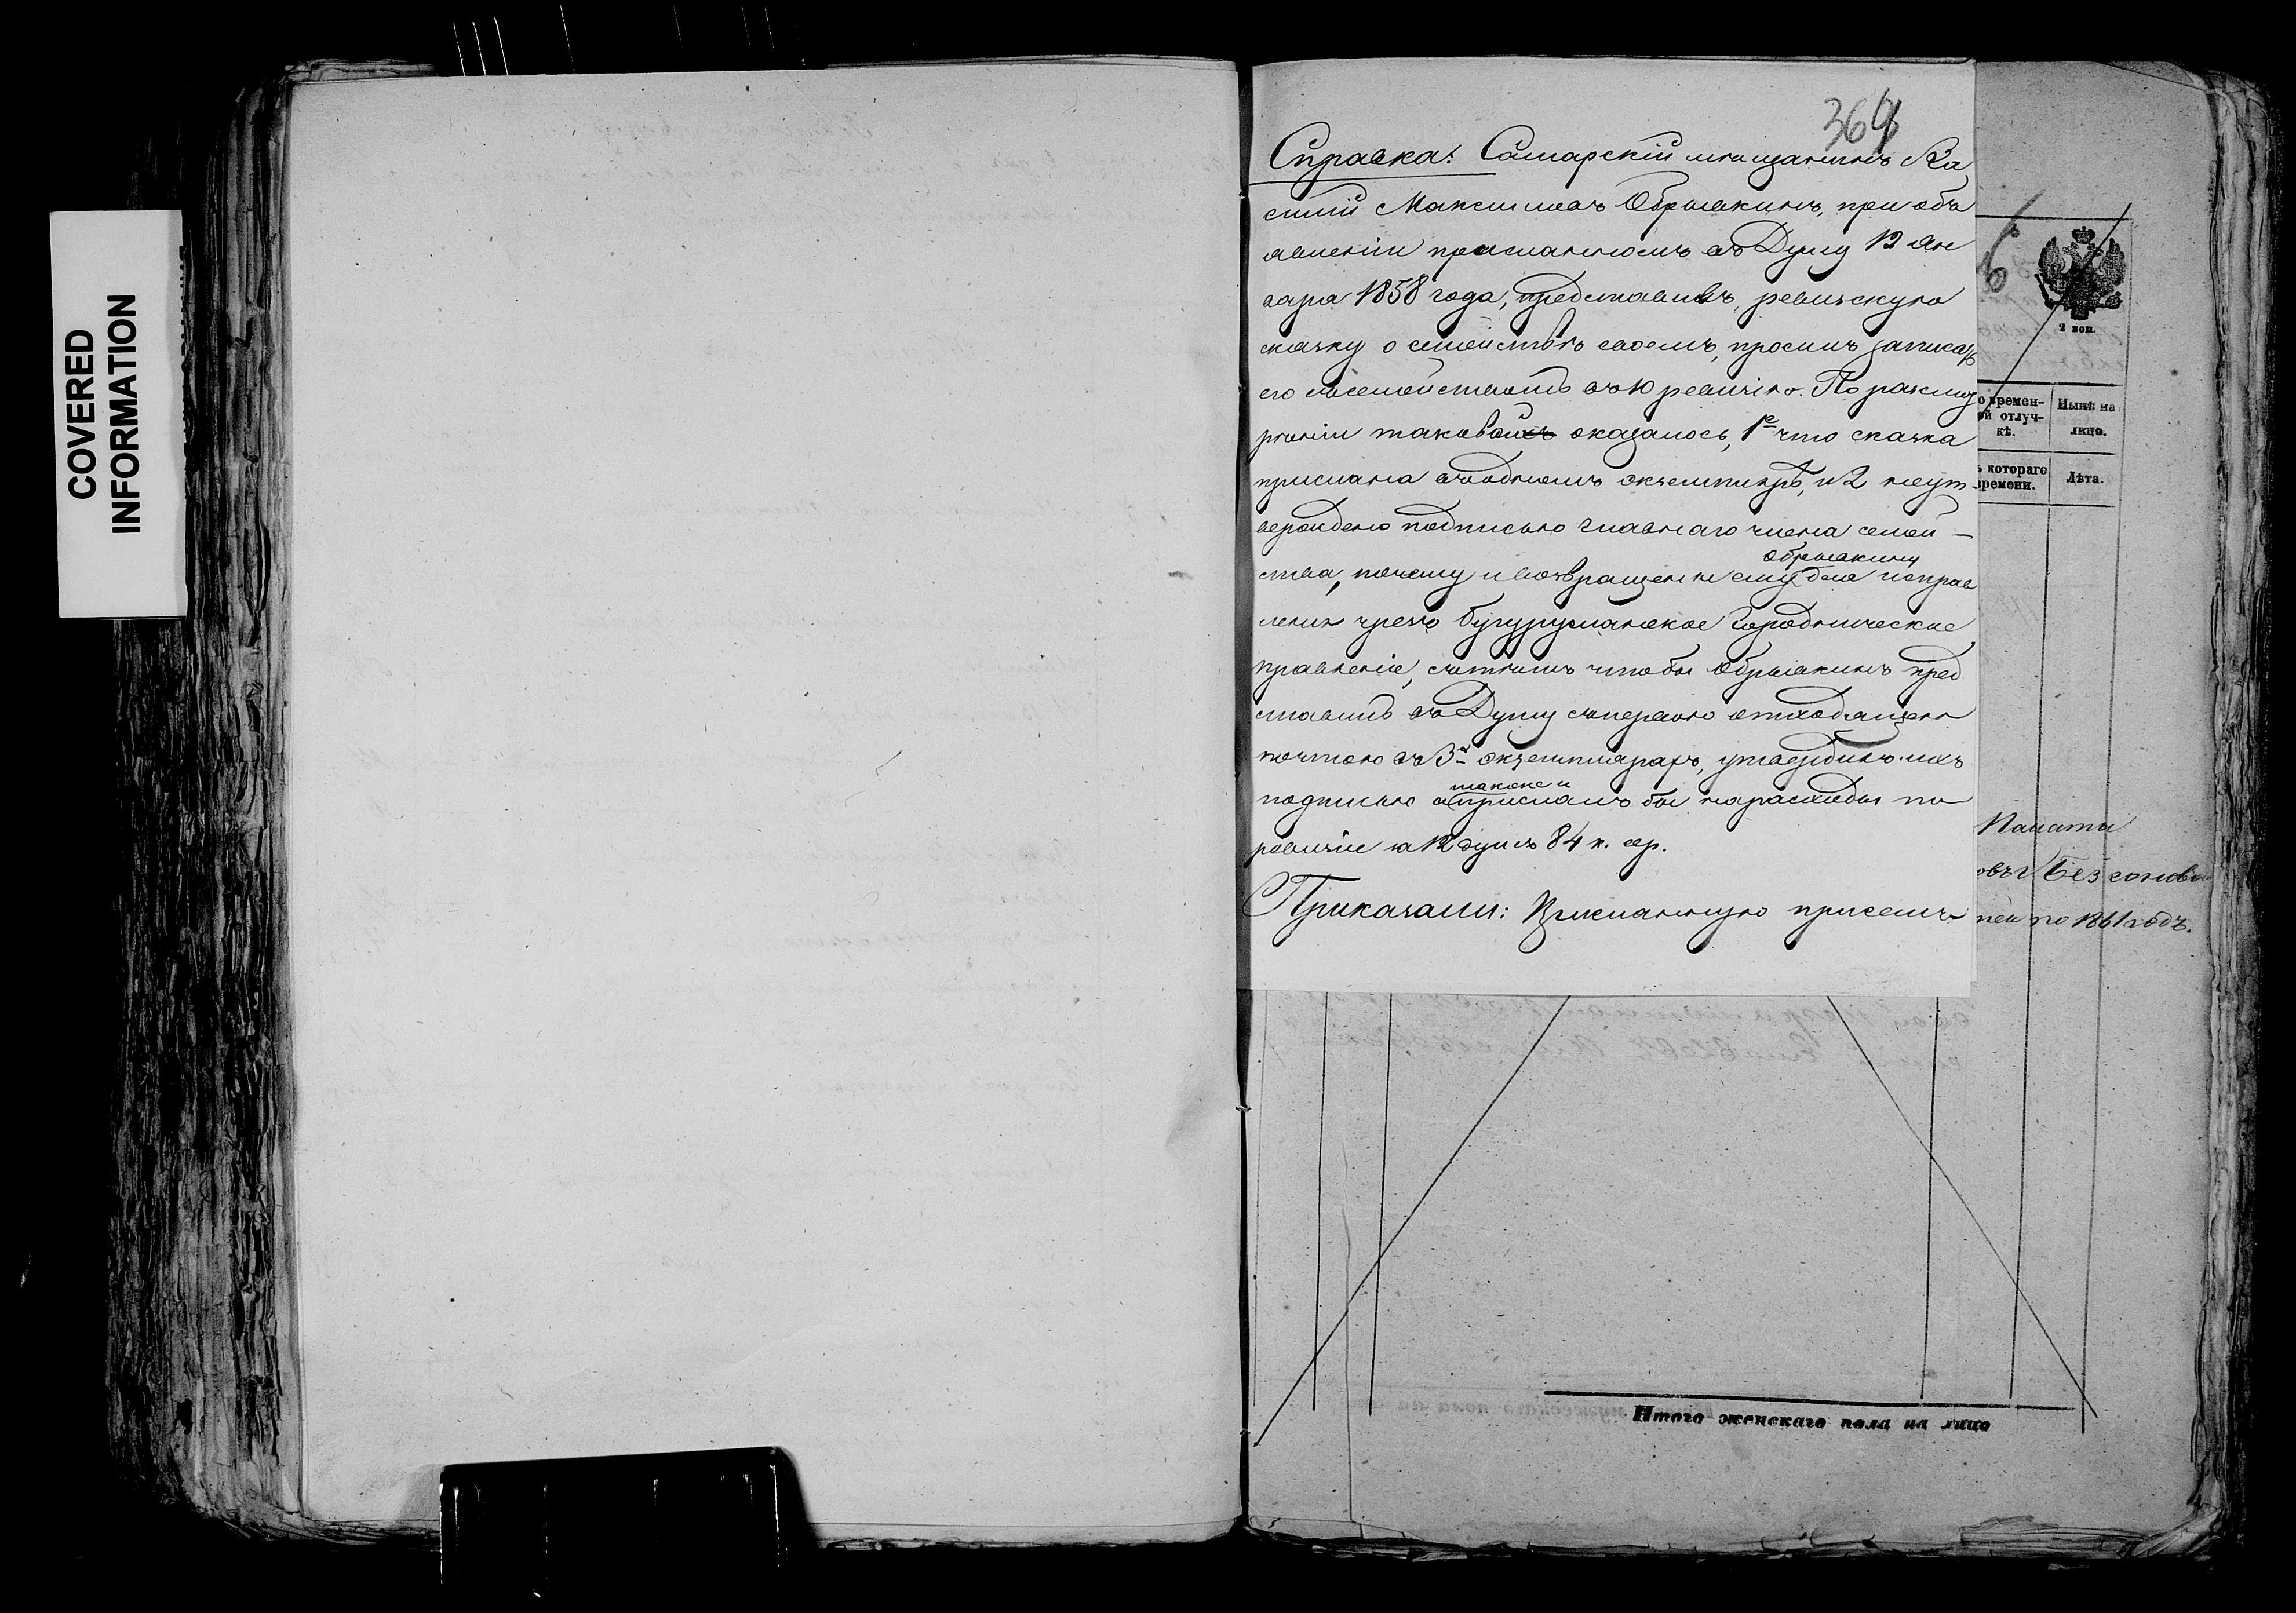 COVERED
INFORMATION
369
Справка: Самарскій мѣщанинъ Ва
силій Максимовъ Обрывкинъ, при объ
явленіи присланномъ въ Думу 12 Ян
варя 1858 года, представивъ ревизскую
сказку о семействѣ своемъ, проситъ записать
его съ семействомъ въ 10 ревизію. По разсмот
рѣніи таковой оказалось, 1е что сказка
прислана въ одномъ экземплярѣ, и 2 неут-
верждена подписью главнаго члена семей-
Обрывкину
ства, почему и возвращена ему для исправ
ленія чрезъ Бугурусланское Городническое
правленіе, съ тѣмъ чтобы Обрывкинъ пред
ставилъ въ Думу съ первою отходящею
почтою въ 3х экземплярахъ, утвердивъ ихъ
также и
подписью а прислалъ бы на расходы по
ревизіи за 12 душъ 84 к. сер.
Приказали: Присланную при семъ
2 коп.
о времен-
ой отлуч-
кѣ.
Нынѣ на
лицо.
ъ котораго
времени.
Лѣта.
Палаты
овъ
по 1861 годъ.
Итого женскаго пола на лицо